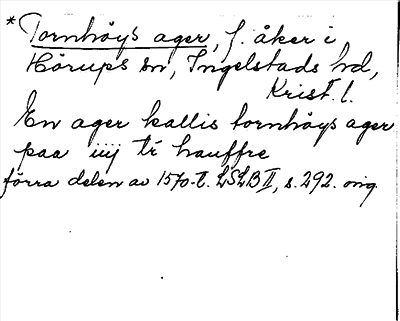 * Tornhöys ager, f. åker i,
Hörups sn, Ingelstads hd,
Krist. l.
En ager kallis tornhöys ager
paa iiij tr hauffre
förra delen av 1570-t. LSLB II, s. 292. orig